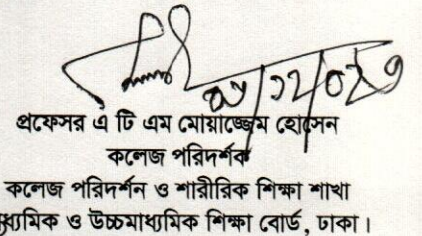 প্রফেসর এ টি এম মোয়াজ্জেম হোসেন
কলেজ পরিদর্শক
কলেজ পরিদর্শন ও শারীরিক শিক্ষা শাখা
মাধ্যমিক ও উচ্চমাধ্যমিক শিক্ষা বোর্ড, ঢাকা।